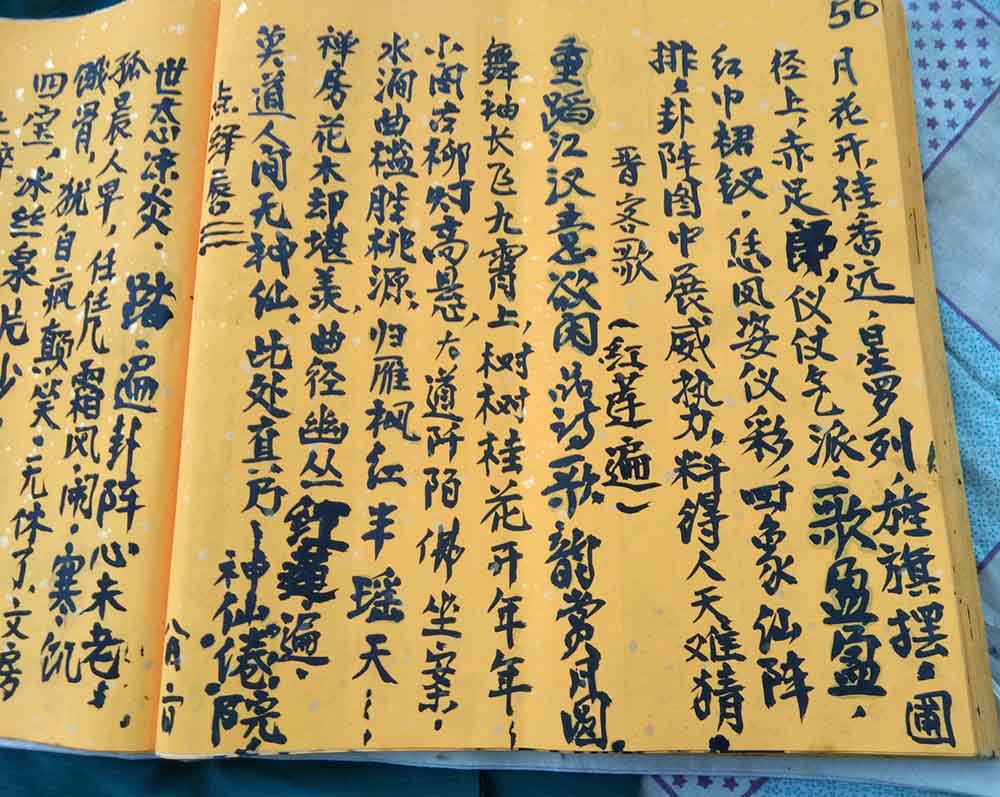 50
月花开,桂香远,星罗列,旌旗摆。圃
径上,赤足,仪仗气派。歌盈盈,
红巾裙钗。恁凤姿仪彩,四象仙阵
排卦阵图中展威势力,料得人天难猜。
晋客歌(红莲遍)
重蹈江汉意欲闲品诗歌韵赏月圆
舞袖长飞九霄上,树树桂花开年年
小阁古柳灯高悬,大道阡陌佛坐案。
水涧曲槛胜桃源,归雁枫红半瑶天
禅房花木却堪羡,曲径幽丛红莲遍。
莫道人间无神仙,此处直乃神仙倦院
点绛唇三
八月二日
世态凉炎。踏遍卦阵心未老。
孤晨人早,任凭霜风闹。寒饥
饿肾,犹自疯颠笑。无休了,文房
四宝,冰丝泉片少